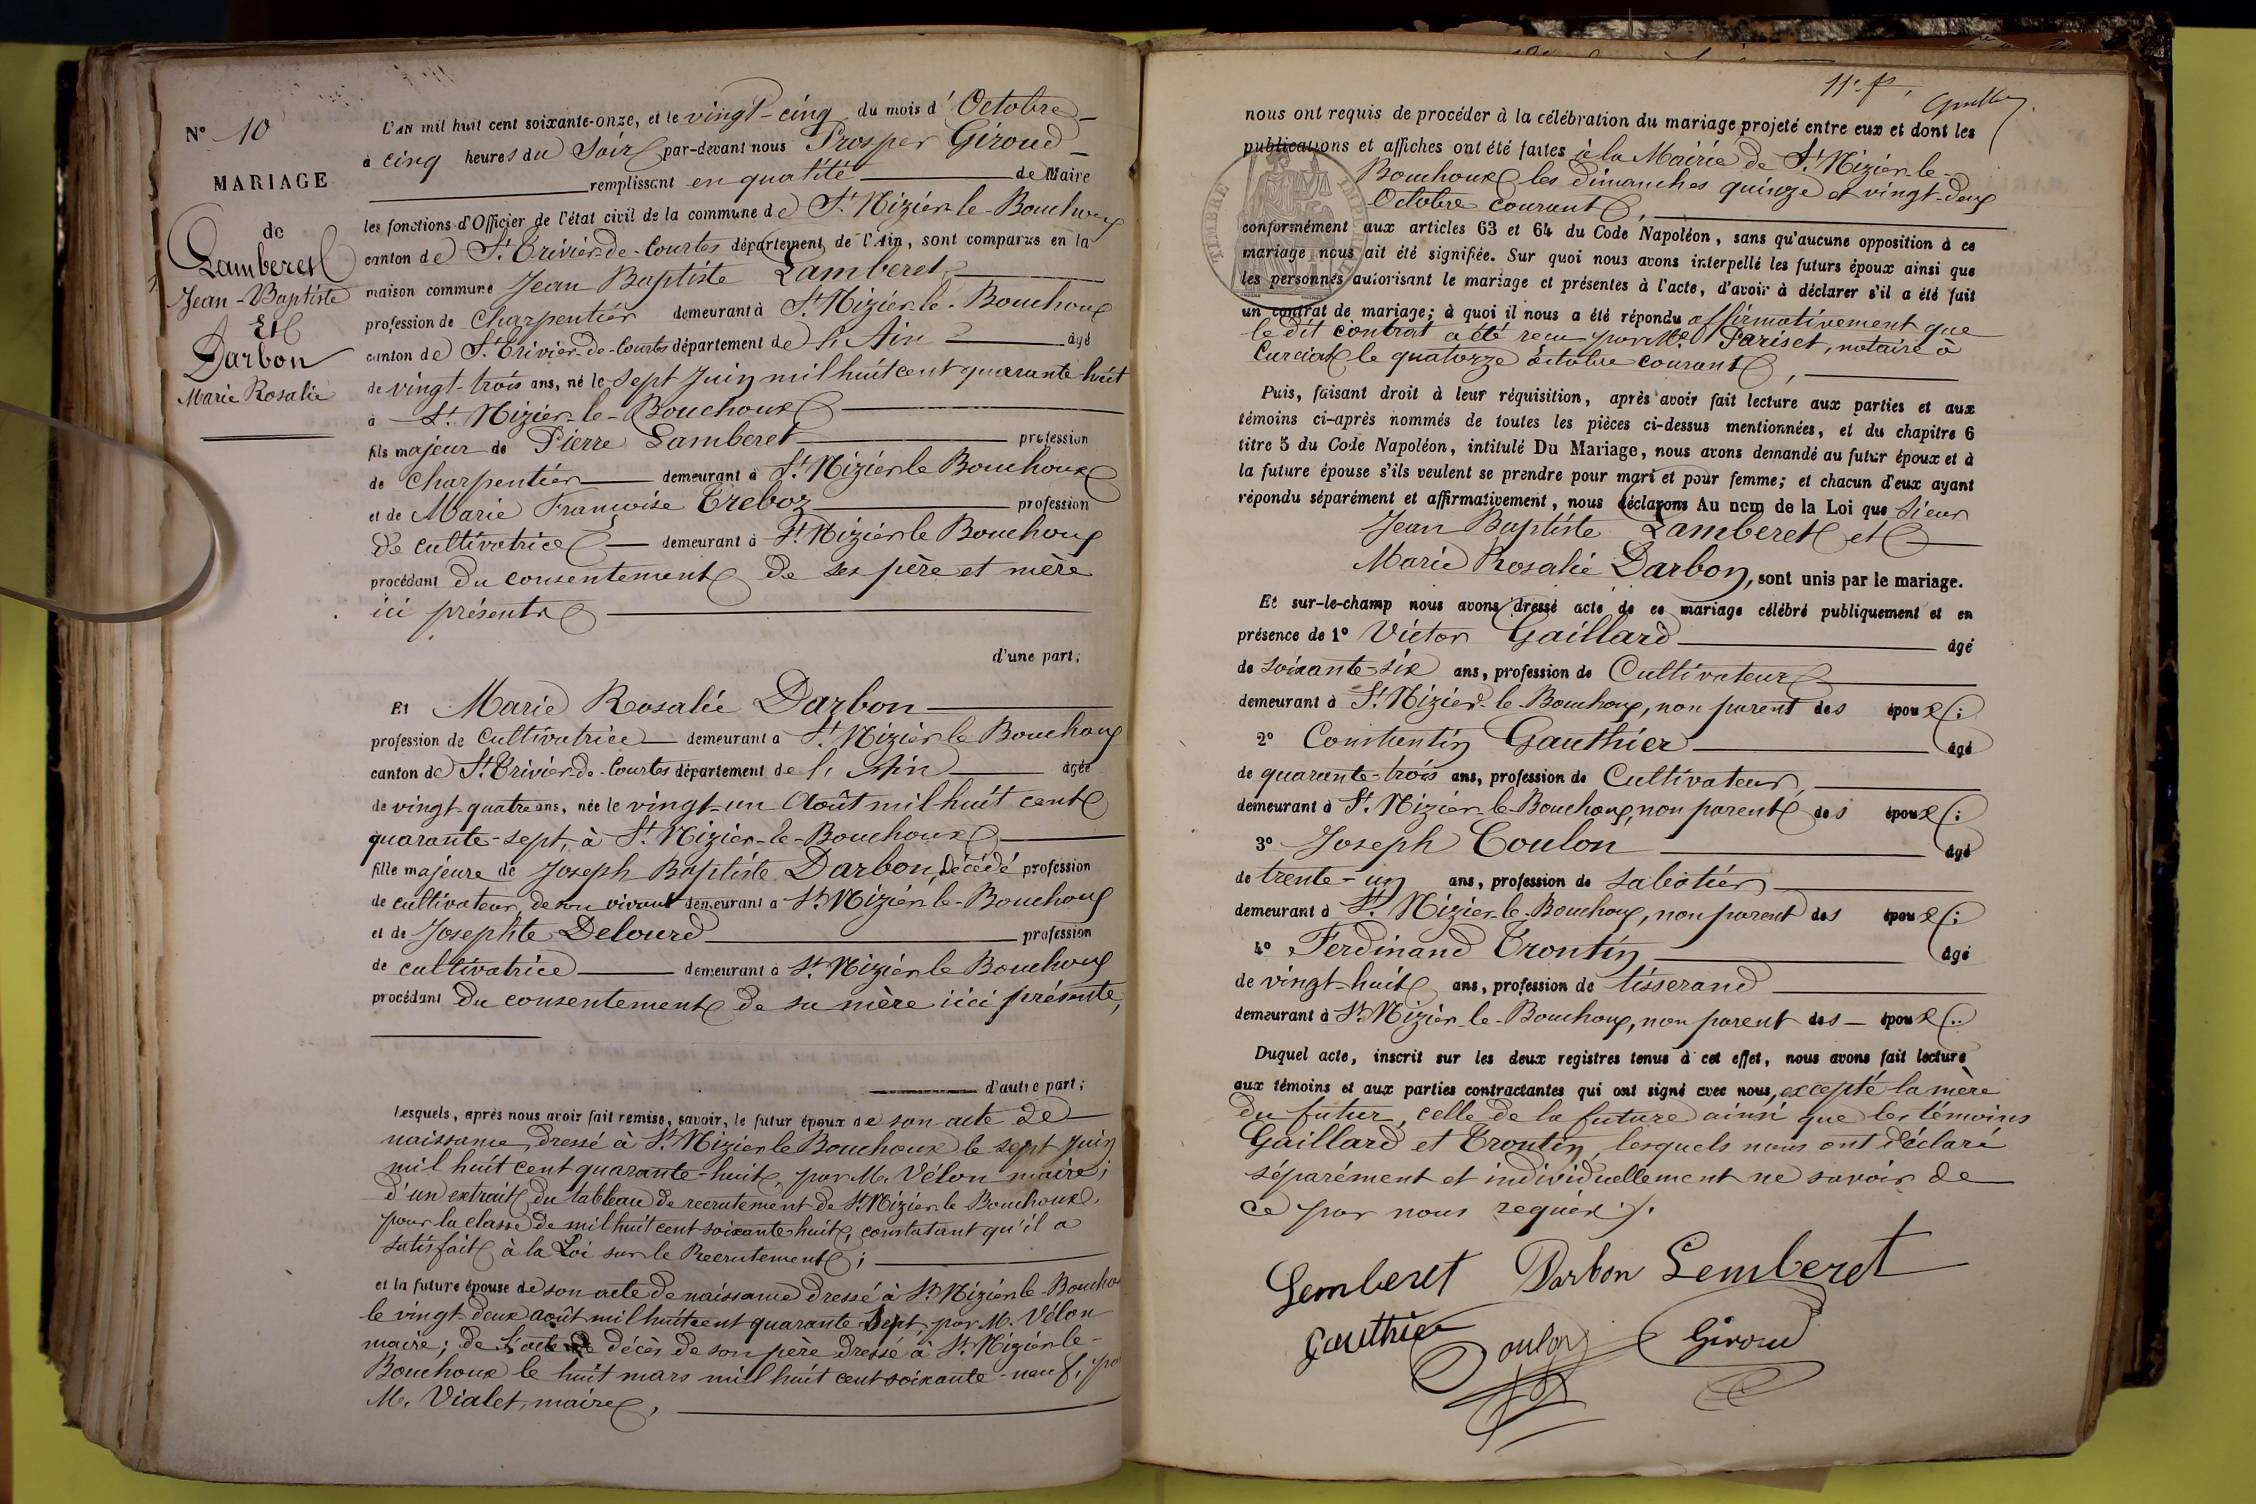 N° 10
MARIAGE
de
Lamberet
Jean-Baptiste
Et
Darbon
Marie Rosalie
L'an mil huit cent soixante-onze, et le vingt-cinq du mois d'Octobre
à cinq heures du Soir par-devant nous Prosper Giroud
remplissant en qualité de Maire
les fonctions d'Officier de l'état civil de la commune de St Nizier-le-Bouchoux
canton de St Trivier-de-Courtes département de l'Ain, sont comparus en la
maison commune Jean Baptiste Lamberet
profession de Charpentier demeurant à St Nizier-le-Bouchoux
canton de St Trivier-de-Courtes département de l'Ain âgé
de vingt-trois ans, né le sept Juin mil huit cent quarante-huit
à St Nizier-le-Bouchoux
fils majeur de Pierre Lamberet profession
de Charpentier demeurant à St Nizier le Bouchoux
et de Marie Françoise Treboz profession
de cultivatrice demeurant à St Nizier le Bouchoux
procédant du consentement de ses père et mère
ici présents
d'une part;
Et Marie Rosalie Darbon
profession de Cultivatrice demeurant à St Nizier le Bouchoux
canton de St Trivier-de-Courtes département de l'Ain âgée
de vingt-quatre ans, née le vingt-un Août mil huit cent
quarante-sept, à St Nizier-le-Bouchoux
fille majeure de Joseph Baptiste Darbon, décédé profession
de cultivateur, de son vivant demeurant à St Nizier-le-Bouchoux
et de Josephte Delourd profession
de cultivatrice demeurant à St Nizier le Bouchoux
procédant du consentement de sa mère ici présente,
d'autre part;
Lesquels, après nous avoir fait remise, savoir, le futur époux de son acte de
naissance, dressé à St Nizier le Bouchoux le sept Juin
mil huit cent quarante-huit, par M. Vélon maire;
d'un extrait du tableau de recrutement de St Nizier le Bouchoux,
pour la classe de mil huit cent soixante huit, constatant qu'il a
satisfait à la Loi sur le Recrutement;
et la future épouse de son acte de naissance dressé à St Nizier-le-Boucho
le vingt-deux août mil huit cent quarante Sept, par M. Vélon
maire; de l'acte de décès de son père dressé à St Nizier-le-
Bouchoux le huit mars mil huit cent soixante-neuf, pa
M. Vialet, maire,
11e f.
nous ont requis de procéder à la célébration du mariage projeté entre eux et dont les
publications et affiches ont été faites à la Mairie de St Nizier-le-
Bouchoux les dimanches quinze et vingt-deux
Octobre courant,
TIMBRE IMPERIAL
conformément aux articles 63 et 64 du Code Napoléon, sans qu'aucune opposition à ce
mariage nous ait été signifiée. Sur quoi nous avons interpellé les futurs époux ainsi que
les personnes autorisant le mariage et présentes à l'acte, d'avoir à déclarer s'il a été fait
un contrat de mariage; à quoi il nous a été répondu affirmativement que
le dit contrat a été reçu par Me Pariset, notaire à
Curciat le quatorze octobre courant,
Puis, faisant droit à leur réquisition, après avoir fait lecture aux parties et aux
témoins ci-après nommés de toutes les pièces ci-dessus mentionnées, et du chapitre 6
titre 5 du Code Napoléon, intitulé Du Mariage, nous avons demandé au futur époux et à
la future épouse s'ils veulent se prendre pour mari et pour femme; et chacun d'eux ayant
répondu séparément et affirmativement, nous déclarons Au nom de la Loi que Sieur
Jean Baptiste Lamberet et
Marie Rosalie Darbon, sont unis par le mariage.
Et sur-le-champ nous avons dressé acte de ce mariage célébré publiquement et en
présence de 1° Victor Gaillard âgé
de soixante-six ans, profession de Cultivateur
demeurant à St Nizier-le-Bouchoux, non parent des époux;
2° Constentin Gauthier âgé
de quarante-trois ans, profession de Cultivateur,
demeurant à St Nizier-le-Bouchoux, non parent des époux;
3° Joseph Coulon âgé
de trente-un ans, profession de sabotier
demeurant à St Nizier-le-Bouchoux, non parent des époux;
4° Ferdinand Trontin âgé
de vingt-huit ans, profession de tisserand
demeurant à St Nizier-le-Bouchoux, non parent des époux.
Duquel acte, inscrit sur les deux registres tenus à cet effet, nous avons fait lecture
aux témoins et aux parties contractantes qui ont signé avec nous, excepté la mère
du futur, celle de la future ainsi que les témoins
Gaillard et Trontin, lesquels nous ont déclaré
séparément et individuellement ne savoir de
ce par nous requis ./.
Lemberet Darbon Lemberet
Gauthier Coulon Giroud